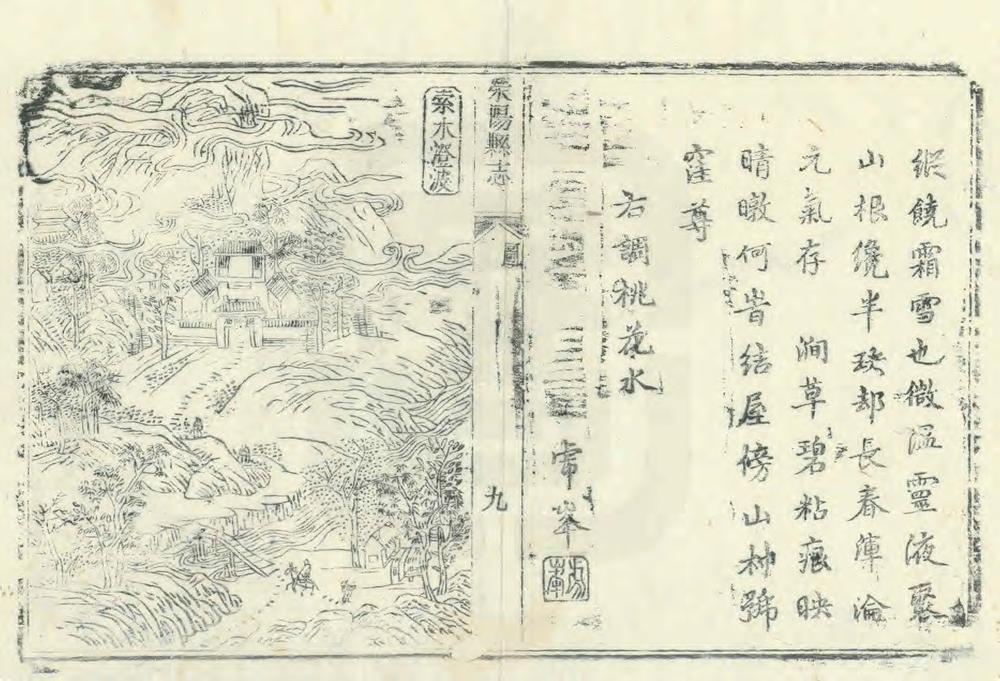 縱饒霜雪也微溫靈液聚
山根纔半玦却長春渾淪
元氣存 澗草碧粘痕映
晴暾何旹結屋傍山村號
窪尊
右調桃花水
常峯
滎陽縣志
圖
九
索水澄波